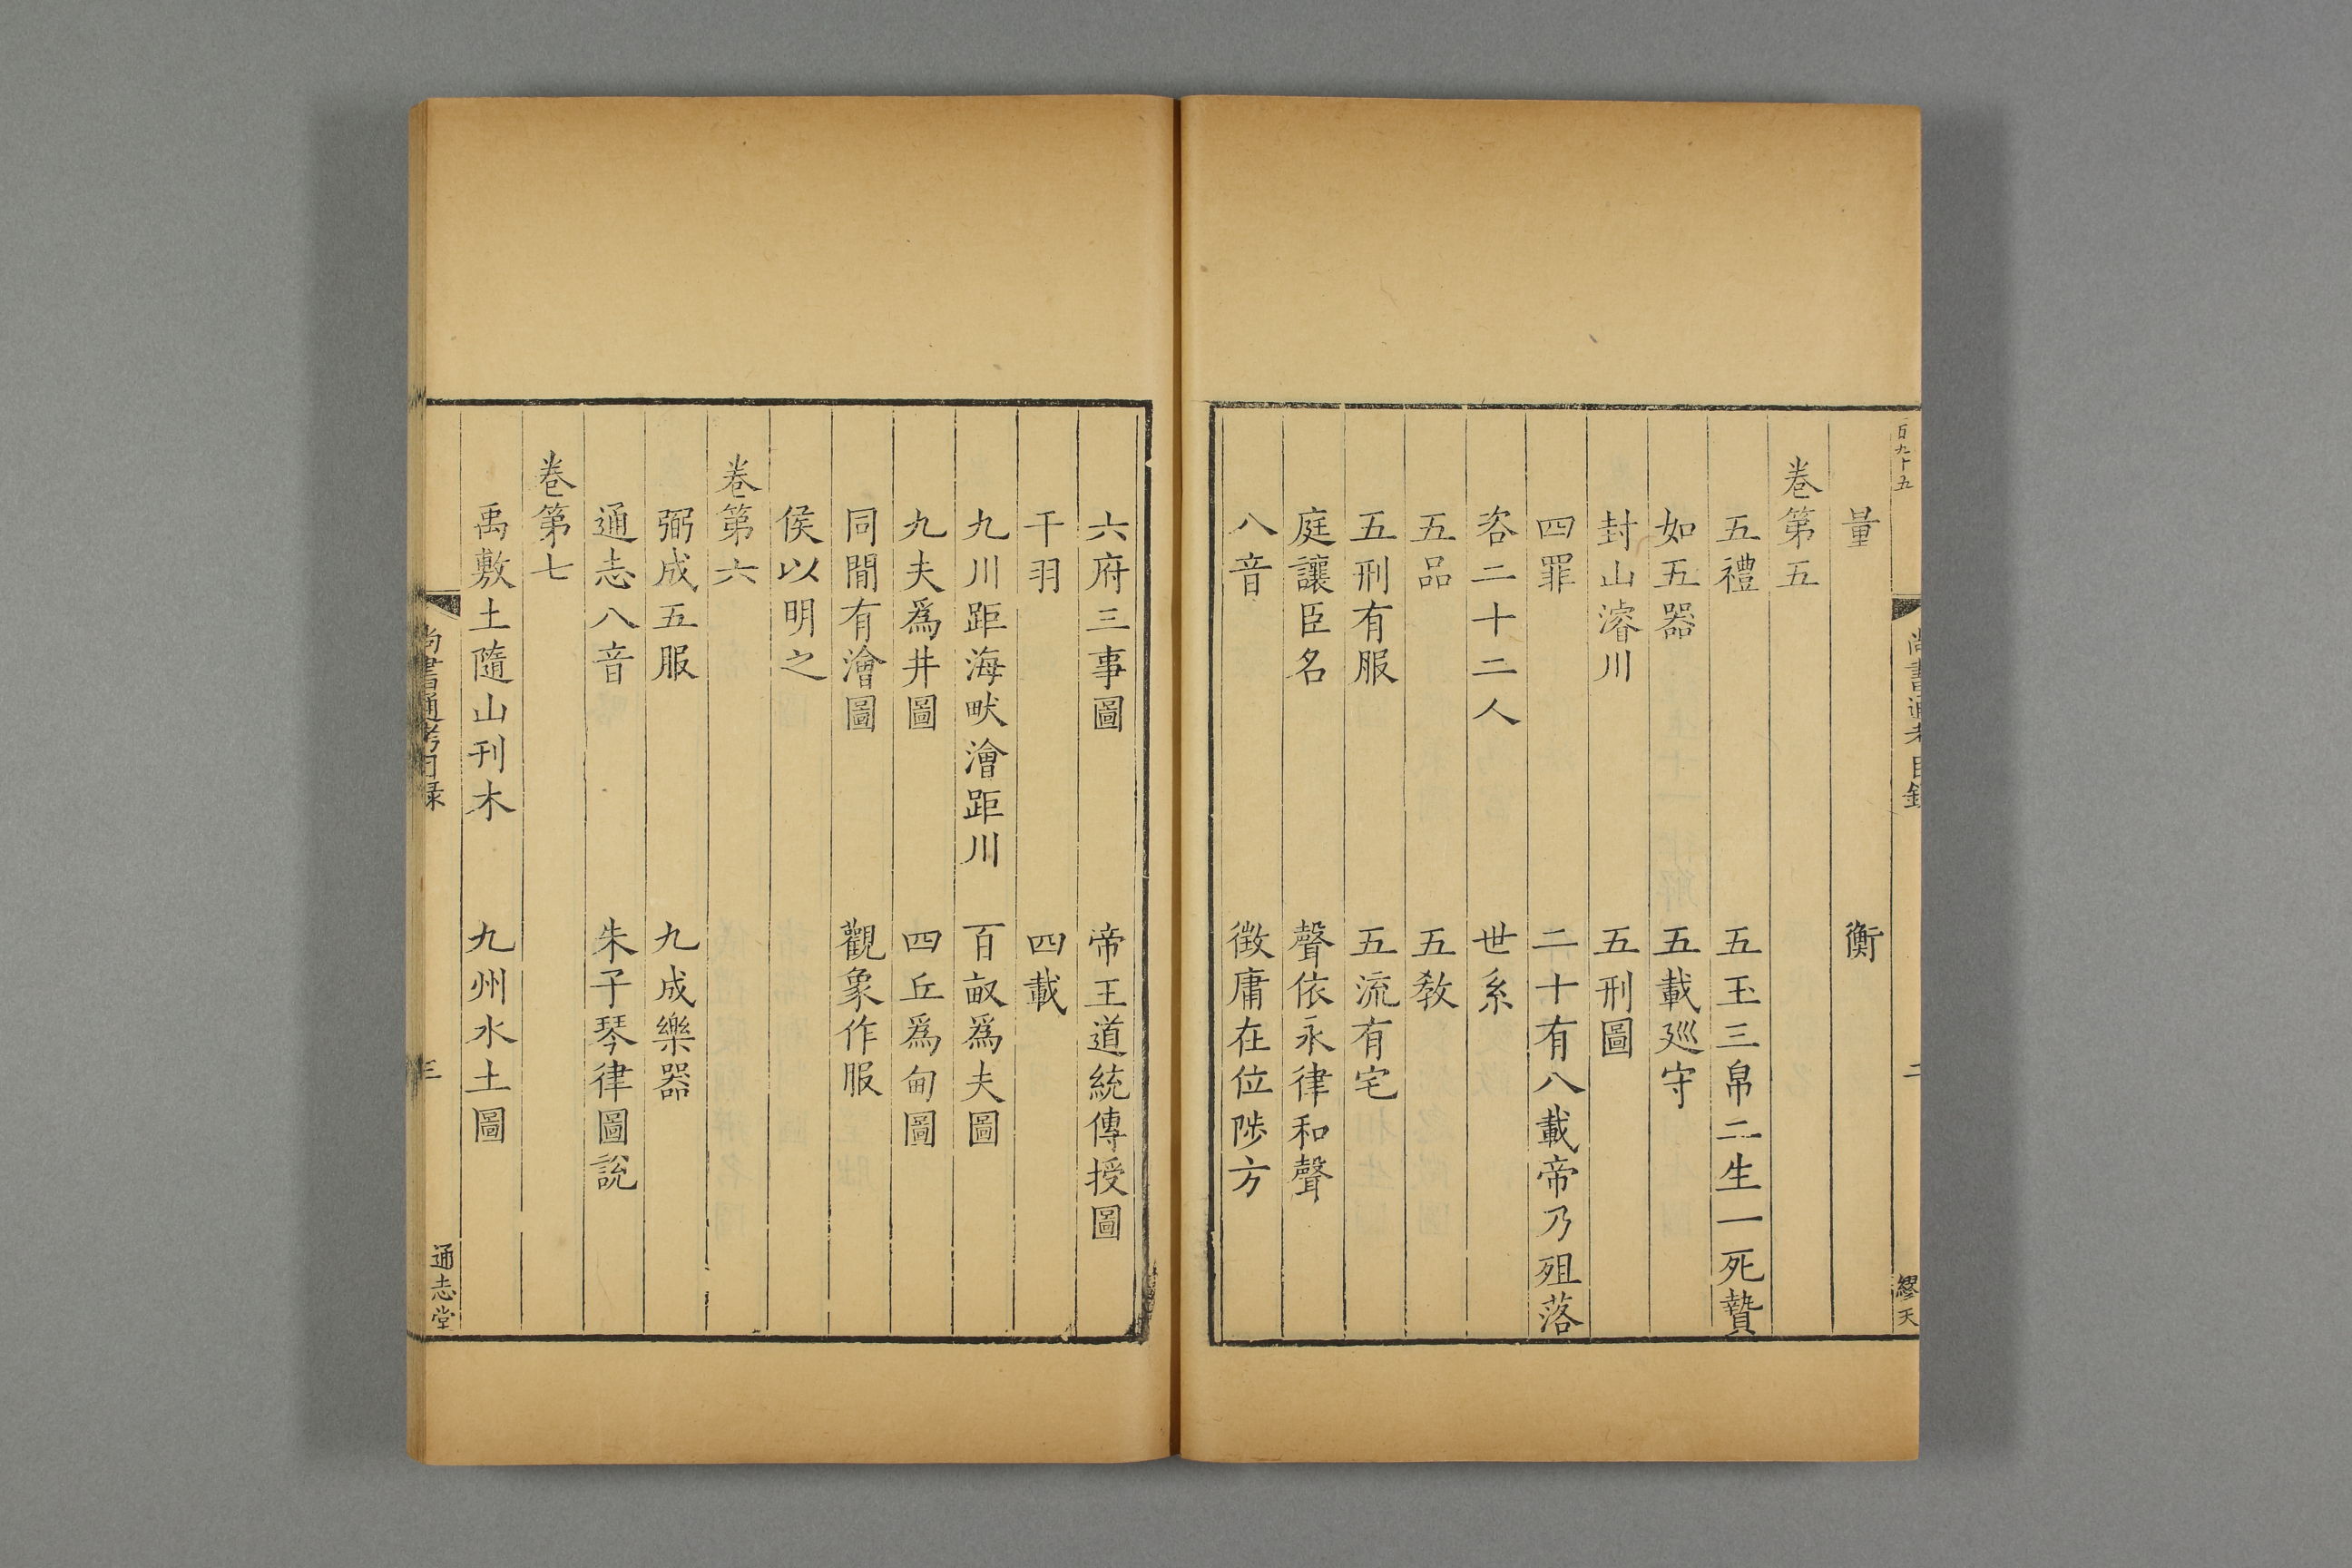 百九十五
尚書通考目錄 二 繆天
量 衡
卷第五
五禮 五玉三帛二生一死贄
如五器 五載廵守
封山濬川 五刑圖
四罪 二十有八載帝乃殂落
咨二十二人 世系
五品 五教
五刑有服 五流有宅
庭讓臣名 聲依永律和聲
八音 徴庸在位陟方
六府三事圖 帝王道統傳授圖
干羽 四載
九川距海畎澮距川 百畝爲夫圖
九夫爲井圖 四丘爲甸圖
同閒有澮圖 觀象作服
侯以明之
卷第六
弼成五服 九成樂器
通志八音 朱子琴律圖說
卷第七
禹敷土隨山刊木 九州水土圖
尚書通考目録 三 通志堂